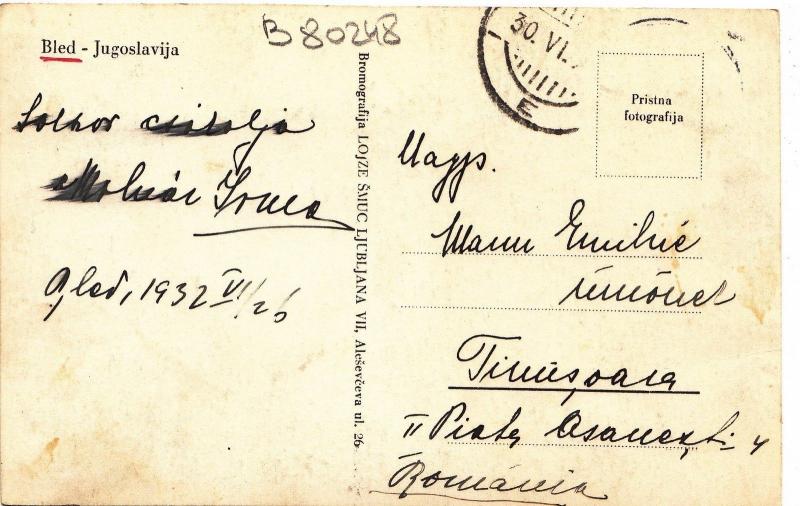 B 80248
Bled - Jugoslavija
30. VI.
E
Pristna
fotografija
Sokszor csókolja
Molnár Irma
Bled, 1932 VI/26
Bromografija LOJZE ŠMUC LJUBLJANA VII, Aleševčeva ul. 26
Nagys.
Mann Emilné
úrnőnek
Timișoara
II Piața Asanești 4
România